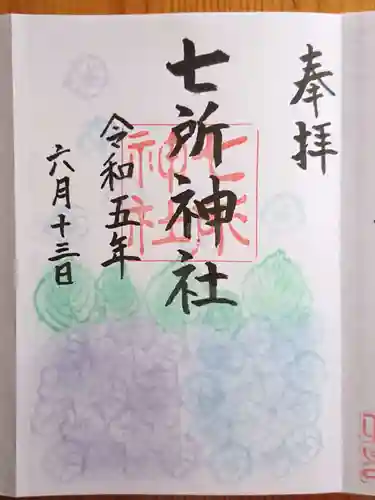 奉拝
七所神社
令和五年
六月十三日